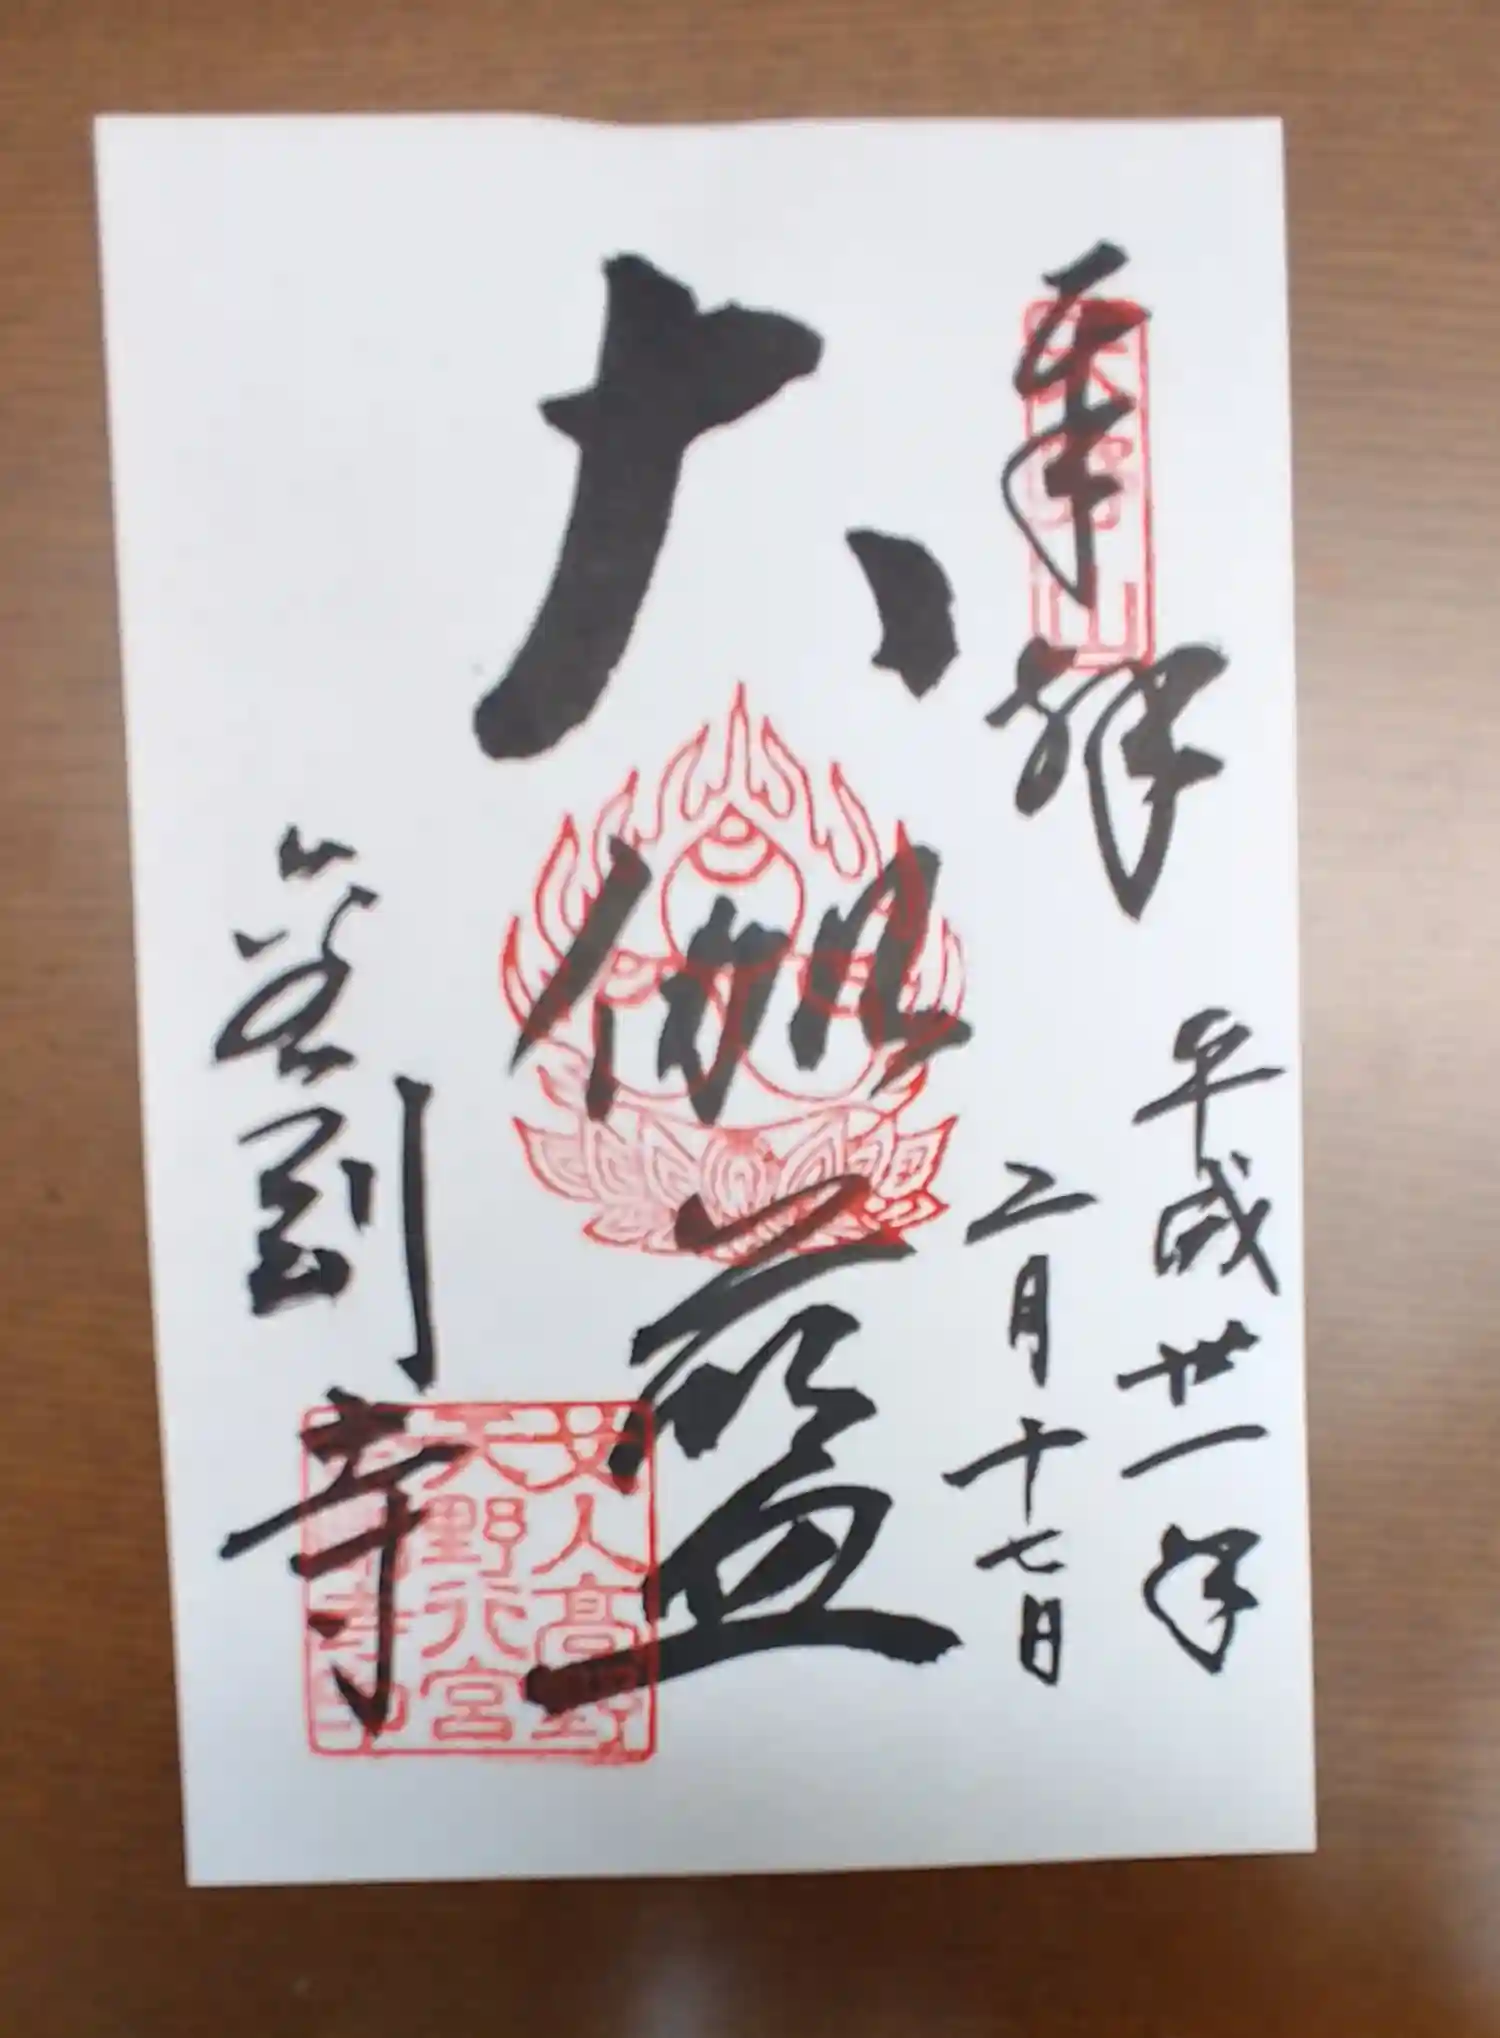 奉拝
天野山
平成卅一年
二月十七日
大伽藍
金剛寺
女人高野
天野行宮
金剛寺印